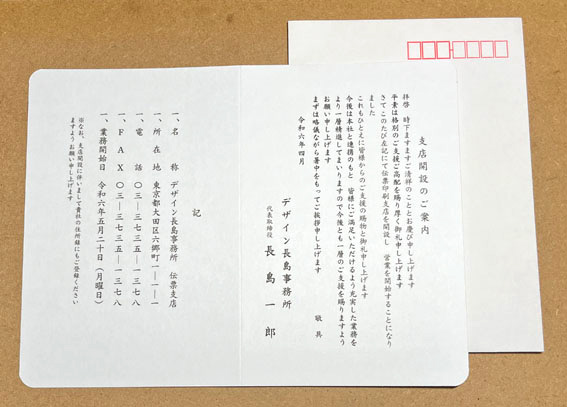 支店開設のご案内
拝啓 時下ますますご清祥のこととお慶び申し上げます
平素は格別のご支援ご高配を賜り厚く御礼申し上げます
さてこのたび左記にて伝票印刷支店を開設し 営業を開始することになり
ました
これもひとえに皆様からのご支援の賜物と御礼申し上げます
今後は本社と連携のもと 皆様にご満足いただけるよう充実した業務を
より一層精進してまいりますので今後とも一層のご支援を賜りますよう
お願い申し上げます
まずは略儀ながら書中をもってご挨拶申し上げます
敬具
令和六年四月
デザイン長島事務所
代表取締役 長島一郎
記
一、名 称 デザイン長島事務所 伝票支店
一、所在地 東京都大田区六郷町一―一―一
一、電 話 〇三―三七三五―一三七八
一、FAX 〇三―三七三五―一三七八
一、業務開始日 令和六年五月二十日（月曜日）
※なお、支店開設に伴いまして貴社の住所録にもご登録ください
ますようお願い申し上げます